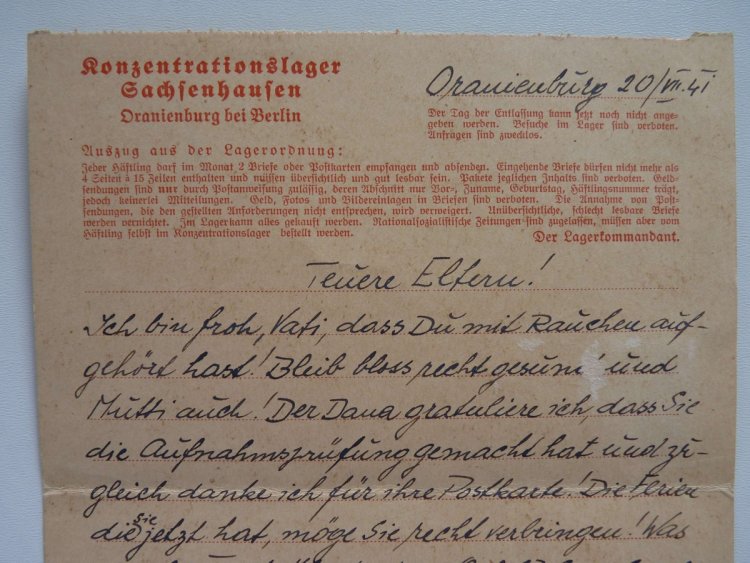 Konzentrationslager
Sachsenhausen
Oranienburg bei Berlin
Oranienburg 20/VII.41
Der Tag der Entlassung kann jetzt noch nicht ange-
geben werden. Besuche im Lager sind verboten.
Anfragen sind zwecklos.
Auszug aus der Lagerordnung:
Jeder Häftling darf im Monat 2 Briefe oder Postkarten empfangen und absenden. Eingehende Briefe dürfen nicht mehr als
4 Seiten à 15 Zeilen enthalten und müssen übersichtlich und gut lesbar sein. Pakete jeglichen Inhalts sind verboten. Geld-
sendungen sind nur durch Postanweisung zulässig, deren Abschnitt nur Vor-, Zuname, Geburtstag, Häftlingsnummer trägt,
jedoch keinerlei Mitteilungen. Geld, Fotos und Bildereinlagen in Briefen sind verboten. Die Annahme von Post-
sendungen, die den gestellten Anforderungen nicht entsprechen, wird verweigert. Unübersichtliche, schlecht lesbare Briefe
werden vernichtet. Im Lager kann alles gekauft werden. Nationalsozialistische Zeitungen sind zugelassen, müssen aber vom
Häftling selbst im Konzentrationslager bestellt werden.
Der Lagerkommandant.
Teuere Eltern!
Ich bin froh, Vati, dass Du mit Rauchen auf-
gehört hast! Bleib bloss recht gesund und
Mutti auch! Der Dana gratuliere ich, dass Sie
die Aufnahmsprüfung gemacht hat und zu-
gleich danke ich für ihre Postkarte! Die Ferien
die sie jetzt hat, möge Sie recht verbringen! Was